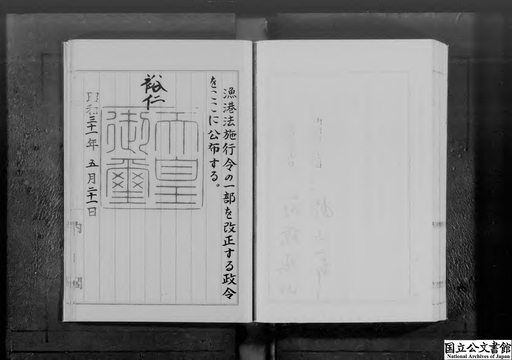 漁港法施行令の一部を改正する政令
をここに公布する。
裕仁
天皇
御璽
昭和三十一年五月二十一日
内閣
国立公文書館
National Archives of Japan